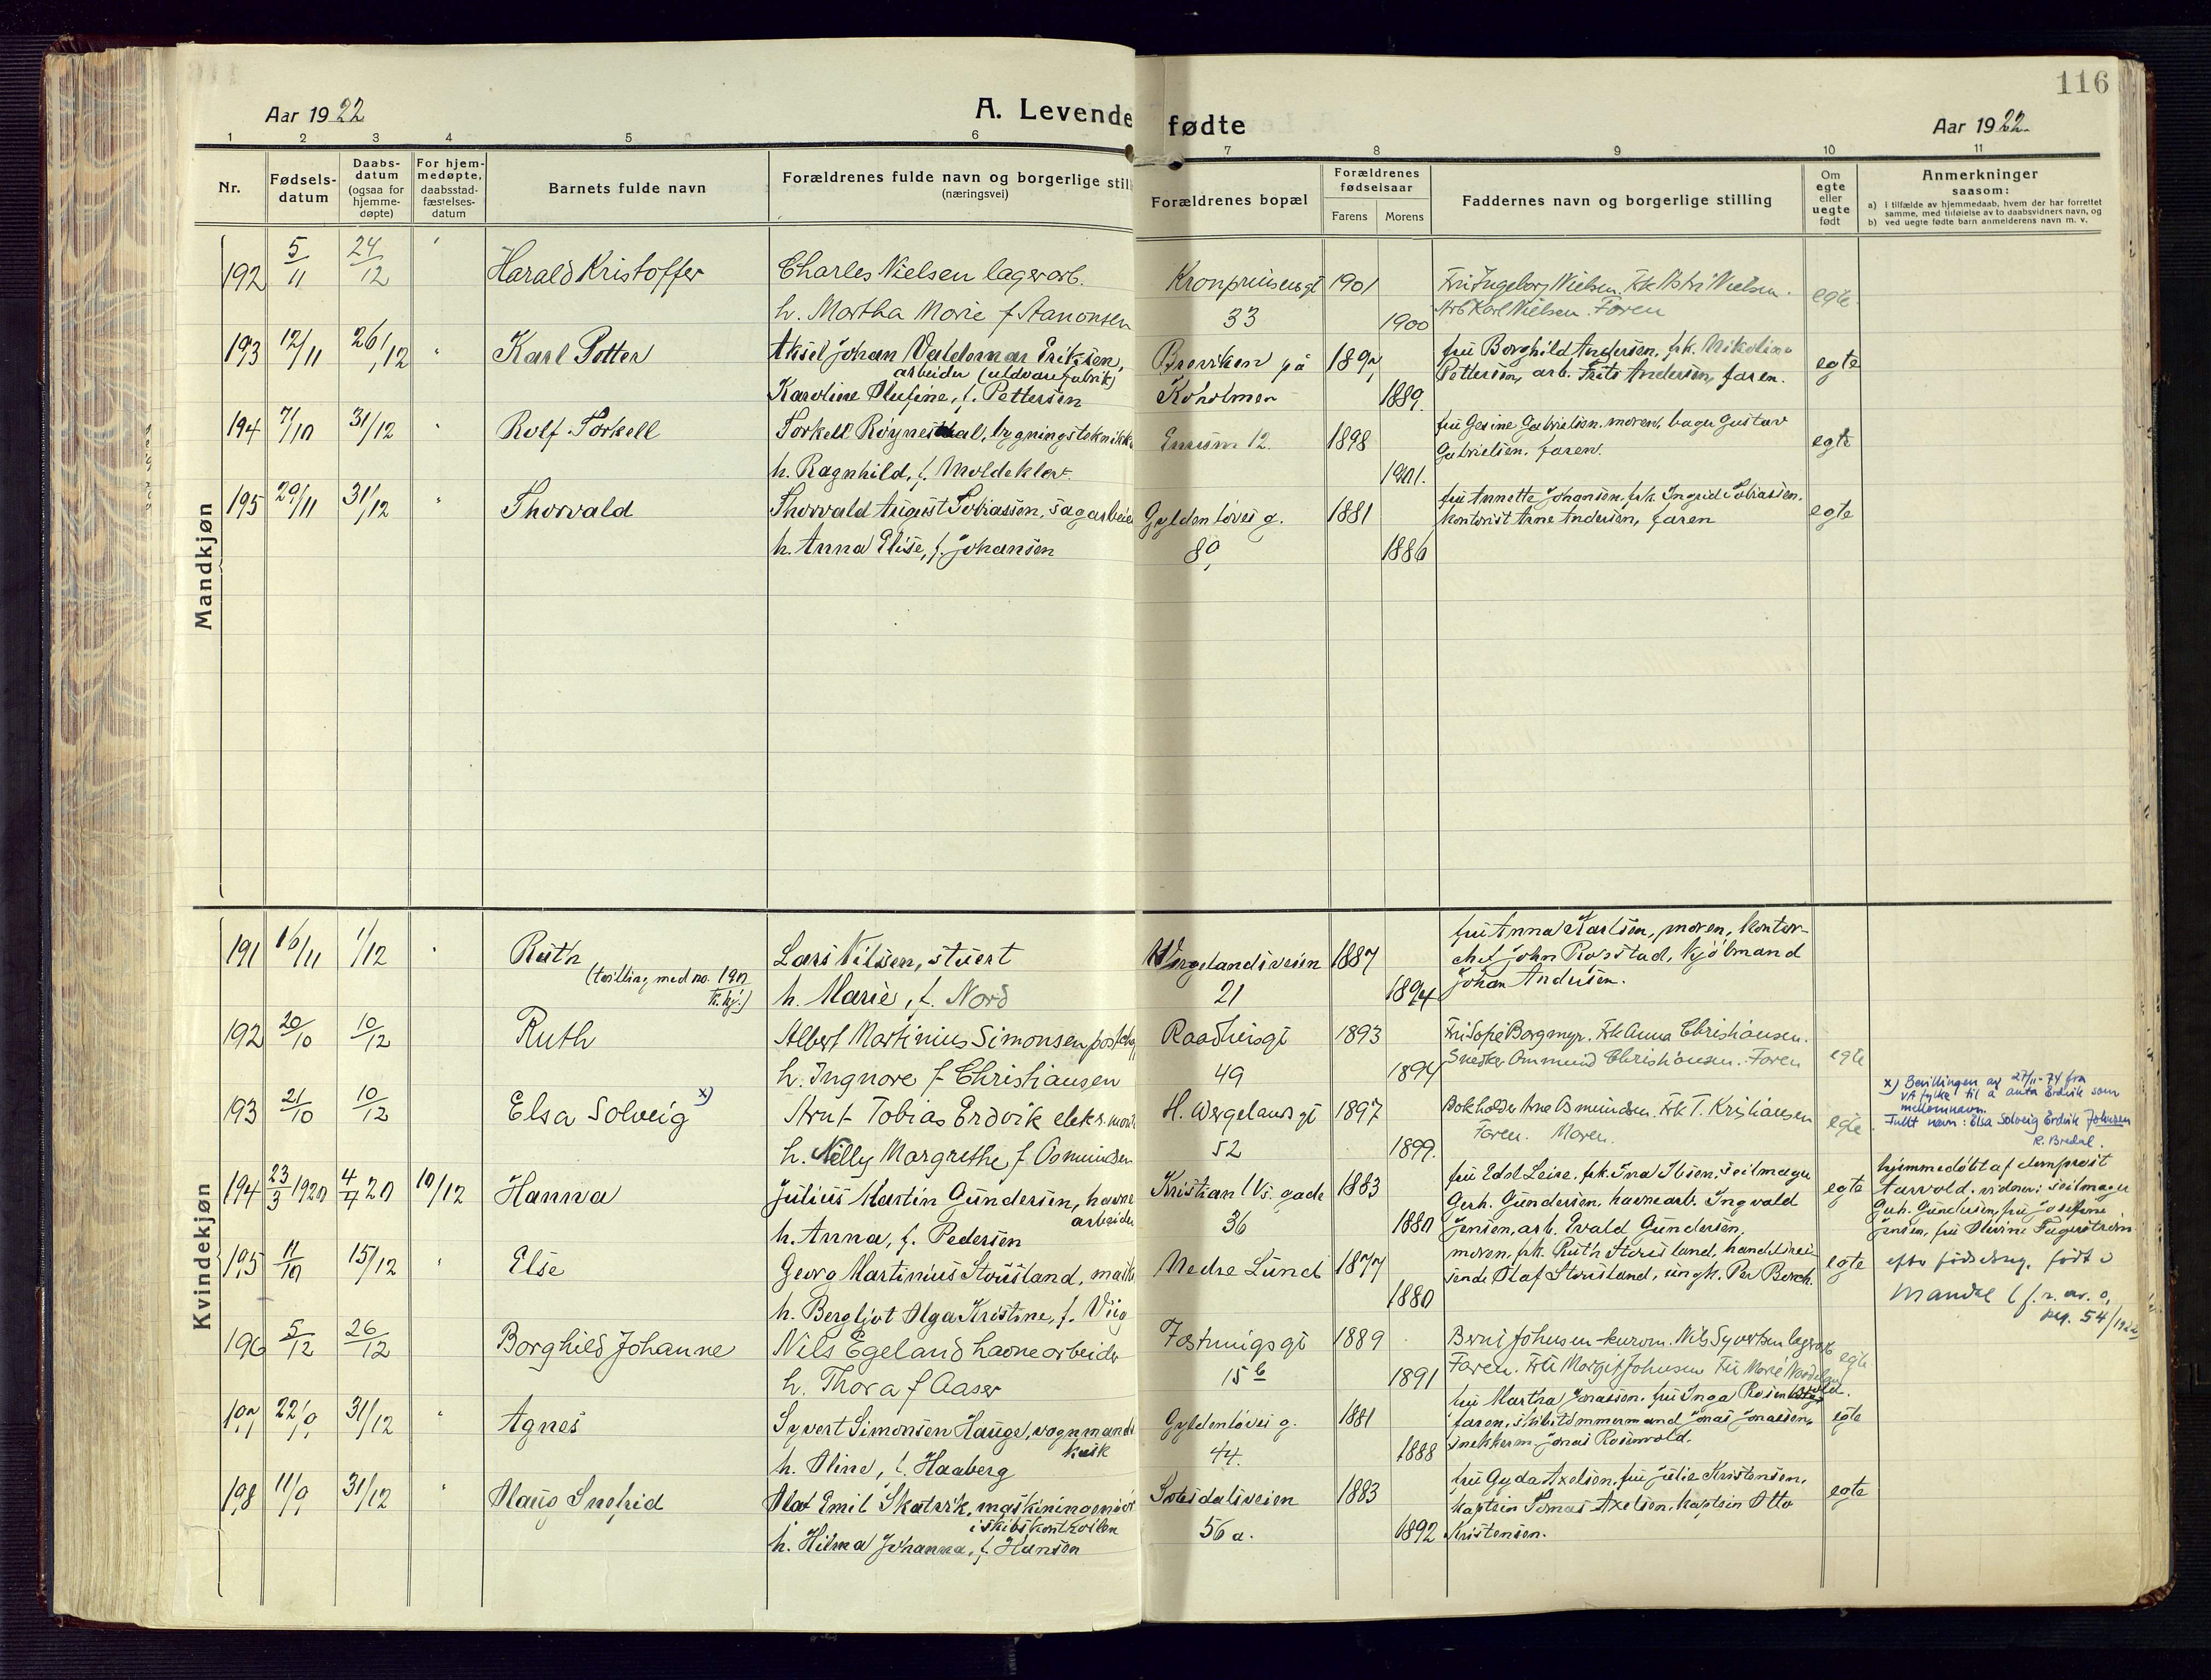 116
Aar 1922
A. Levende fødte
Aar 1922
1 2 3 4 5 6 7 8 9 10 11
Nr.
Fødsels-
datum
Daabs-
datum
(ogsaa for
hjemme-
døpte)
For hjem-
medøpte,
daabsstad-
fæstelses-
datum
Barnets fulde navn
Forældrenes fulde navn og borgerlige still
(næringsvei)
Forældrenes bopæl
Forældrenes
fødselsaar
Farens Morens
Faddernes navn og borgerlige stilling
Om
egte
eller
uegte
født
Anmerkninger
saasom:
a) I tilfælde av hjemmedaab, hvem der har forrettet
samme, med tilføielse av to daabsvidners navn, og
b) ved uegte fødte barn anmelderens navn m. v.
Mandkjøn
192 5/11 24/12 Harald Kristoffer Charles Nielsen lagerarb. Kronprinsensgt 1901 Fru Ingeborg Nielsen. Nielsen.
h. Martha Marie f Aanonsen 33 1900 Arb Karl Nielsen. Faren egte
193 12/11 26/12 " Karl Potter Aksel Johan Valdemar Eriksen, på 189 fru Borghild Andersen, frk. Nikoline
arbeider (uldvarefabrik) Pettersen, arb. Frits Andersen, faren. egte
Karoline Olufine, f. Pettersen Koholmen 1889.
194 7/10 31/12 " Rolf Torkell Torkell Røynesdal, bygningstekniker 12. 1898 fru Gesine Gabrielsen. moren, bager Gustav
Gabrielsen. faren. egte
h. Ragnhild, f. Moldeklev. 1901.
195 20/11 31/12 " Thorvald Thorvald August Tobiassen, sagarbeider Gyldenløves g. 1881 fru Annette Johansen. frk. Ingrid Tobiassen.
kontorist Arne Andersen, faren egte
h. Anna Elise, f. Johansen 80, 1886
Kvindekjøn
191 16/11 1/12 " Ruth Lars Nilsen, stuert Wergelandsveien 1887 fru Anna Karlsen, moren, kontor-
chef John Rosstad, kjølmand
(tvilling med no. 190 k.kj.) h. Marie, f. Nord 21 1894 Johan Andersen.
192 20/10 10/12 Ruth Albert Martinius Simonsen Raadhusgt 1893 Fru Sofie Borgmyr. Frk Anna Christiansen.
h. Ingnore f Christiansen 49 1894 Snedker Ommund Christiansen. Faren egte
193 21/10 10/12 Elsa Solveig x) Arnt Tobias Erdvik elektr. mon H. Wergelands gt 1897 Bokholder Arne Osmundsen. Frk T. Kristiansen
Faren. Moren. egte
h. Nelly Margrethe f Osmundsen 52 1899.
x) Bevillingen av 27/11-74 fra
VA fylke til å anta Erdvik som
mellomnavn.
Fullt navn: Elsa Solveig Erdvik Johnsen
R. Bredal.
194 23/3 1920 4/7 20 10/12 Hanna Julius Martin Gundersen, havne Kristian IVs. gade 1883 fru Edel Leire. frk. Ina Ibsen, seilmager
arbeider Gerh. Gundersen, havnearb. Ingvald egte
h. Anna, f. Pedersen 36 1880 Jensen, arb. Evald Gundersen,
hjemmedøbt af domprost
Aarvold. vidner: seilmager
Gerh. Gundersen, fru Josefine
Jensen, fru Olevine Fagerstrøm
195 11/10 15/12 " Else Georg Martinius Stousland, Nedre Lund 1877 moren, frk. Ruth Stousland, handelsrei-
sende Olaf Stousland, ungk. Per Borch. egte
h. Bergljot Olga Kristine, f. Viig 1880
efter fødselsreg. født i
Mandal (f. r. av. o,
pag. 54/1922
196 5/12 26/12 Borghild Johanne Nils Egeland havnearbeider Festningsgt 1889 Johnsen kurvm. Nils Syvertsen lagerarb
Faren. Frk Margit Johnsen Fru Marie egte
h. Thora f Aaser 15 b 1891
31/12 " Agnes Syvert Simonsen Hauge, vognmands Gyldenløves g. 1881 fru Martha Jonassen. fru Inga Rosenvold.
kusk faren, skibstømmermand Jonas Jonassen, egte
h. Oline, f. Haaberg 44. 1888 snekkerm. Jonas Rosenvold.
198 11/9 31/12 " Olaug Snefrid Olaf Emil Skatvik, maskiningeniør Setesdalsveien 1883 fru Gyda Axelsen, fru Julie Kristensen,
i skibskontrollen kaptein Tomas Axelsen, kaptein Otto egte
h. Hilma Johanna, f. Hansen 56 a. 1892 Kristensen.